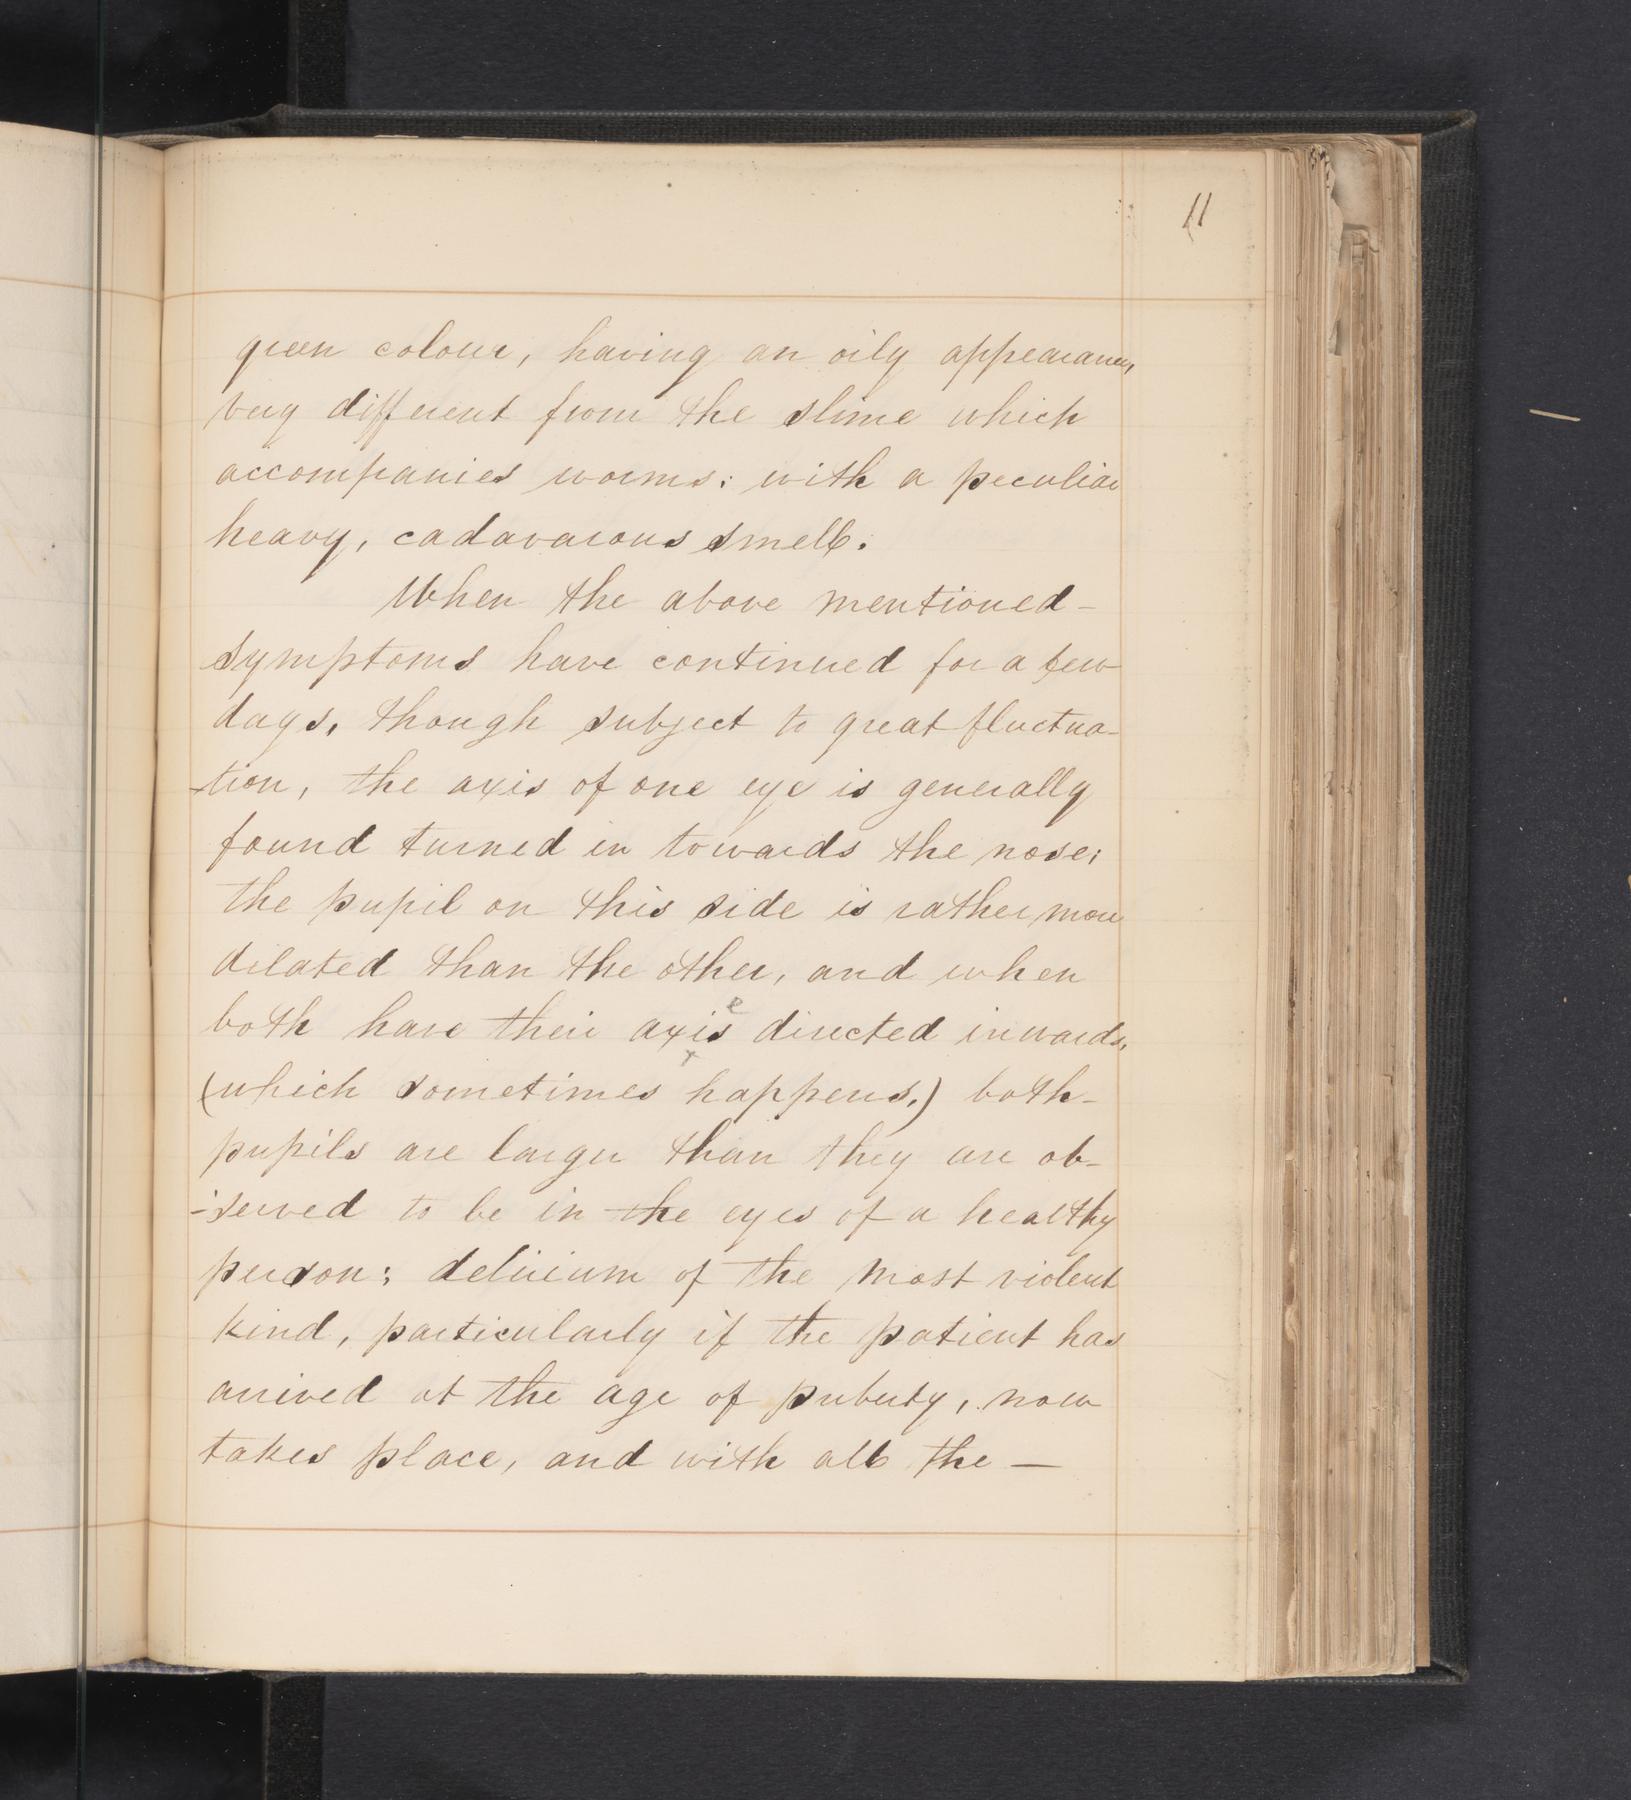 11
green colour, having an oily appearance,
very different from the slime which
accompanies worms: with a peculiar
heavy, cadavarous smell.
When the above mentioned-
symptoms have continued for a few
days, though subject to great fluctua-
-tion, the axis of one eye is generally
found turned in towards the nose;
the pupil on this side is rather more
dilated than the other, and when
e
both have their axis directed inwards,
(which sometimes happens,) both-
pupils are larger than they are ob-
-served to be in the eyes of a healthy
person; delirium of the most violent
kind, particularly if the patient has
arrived at the age of puberty, now
takes place, and with all the —